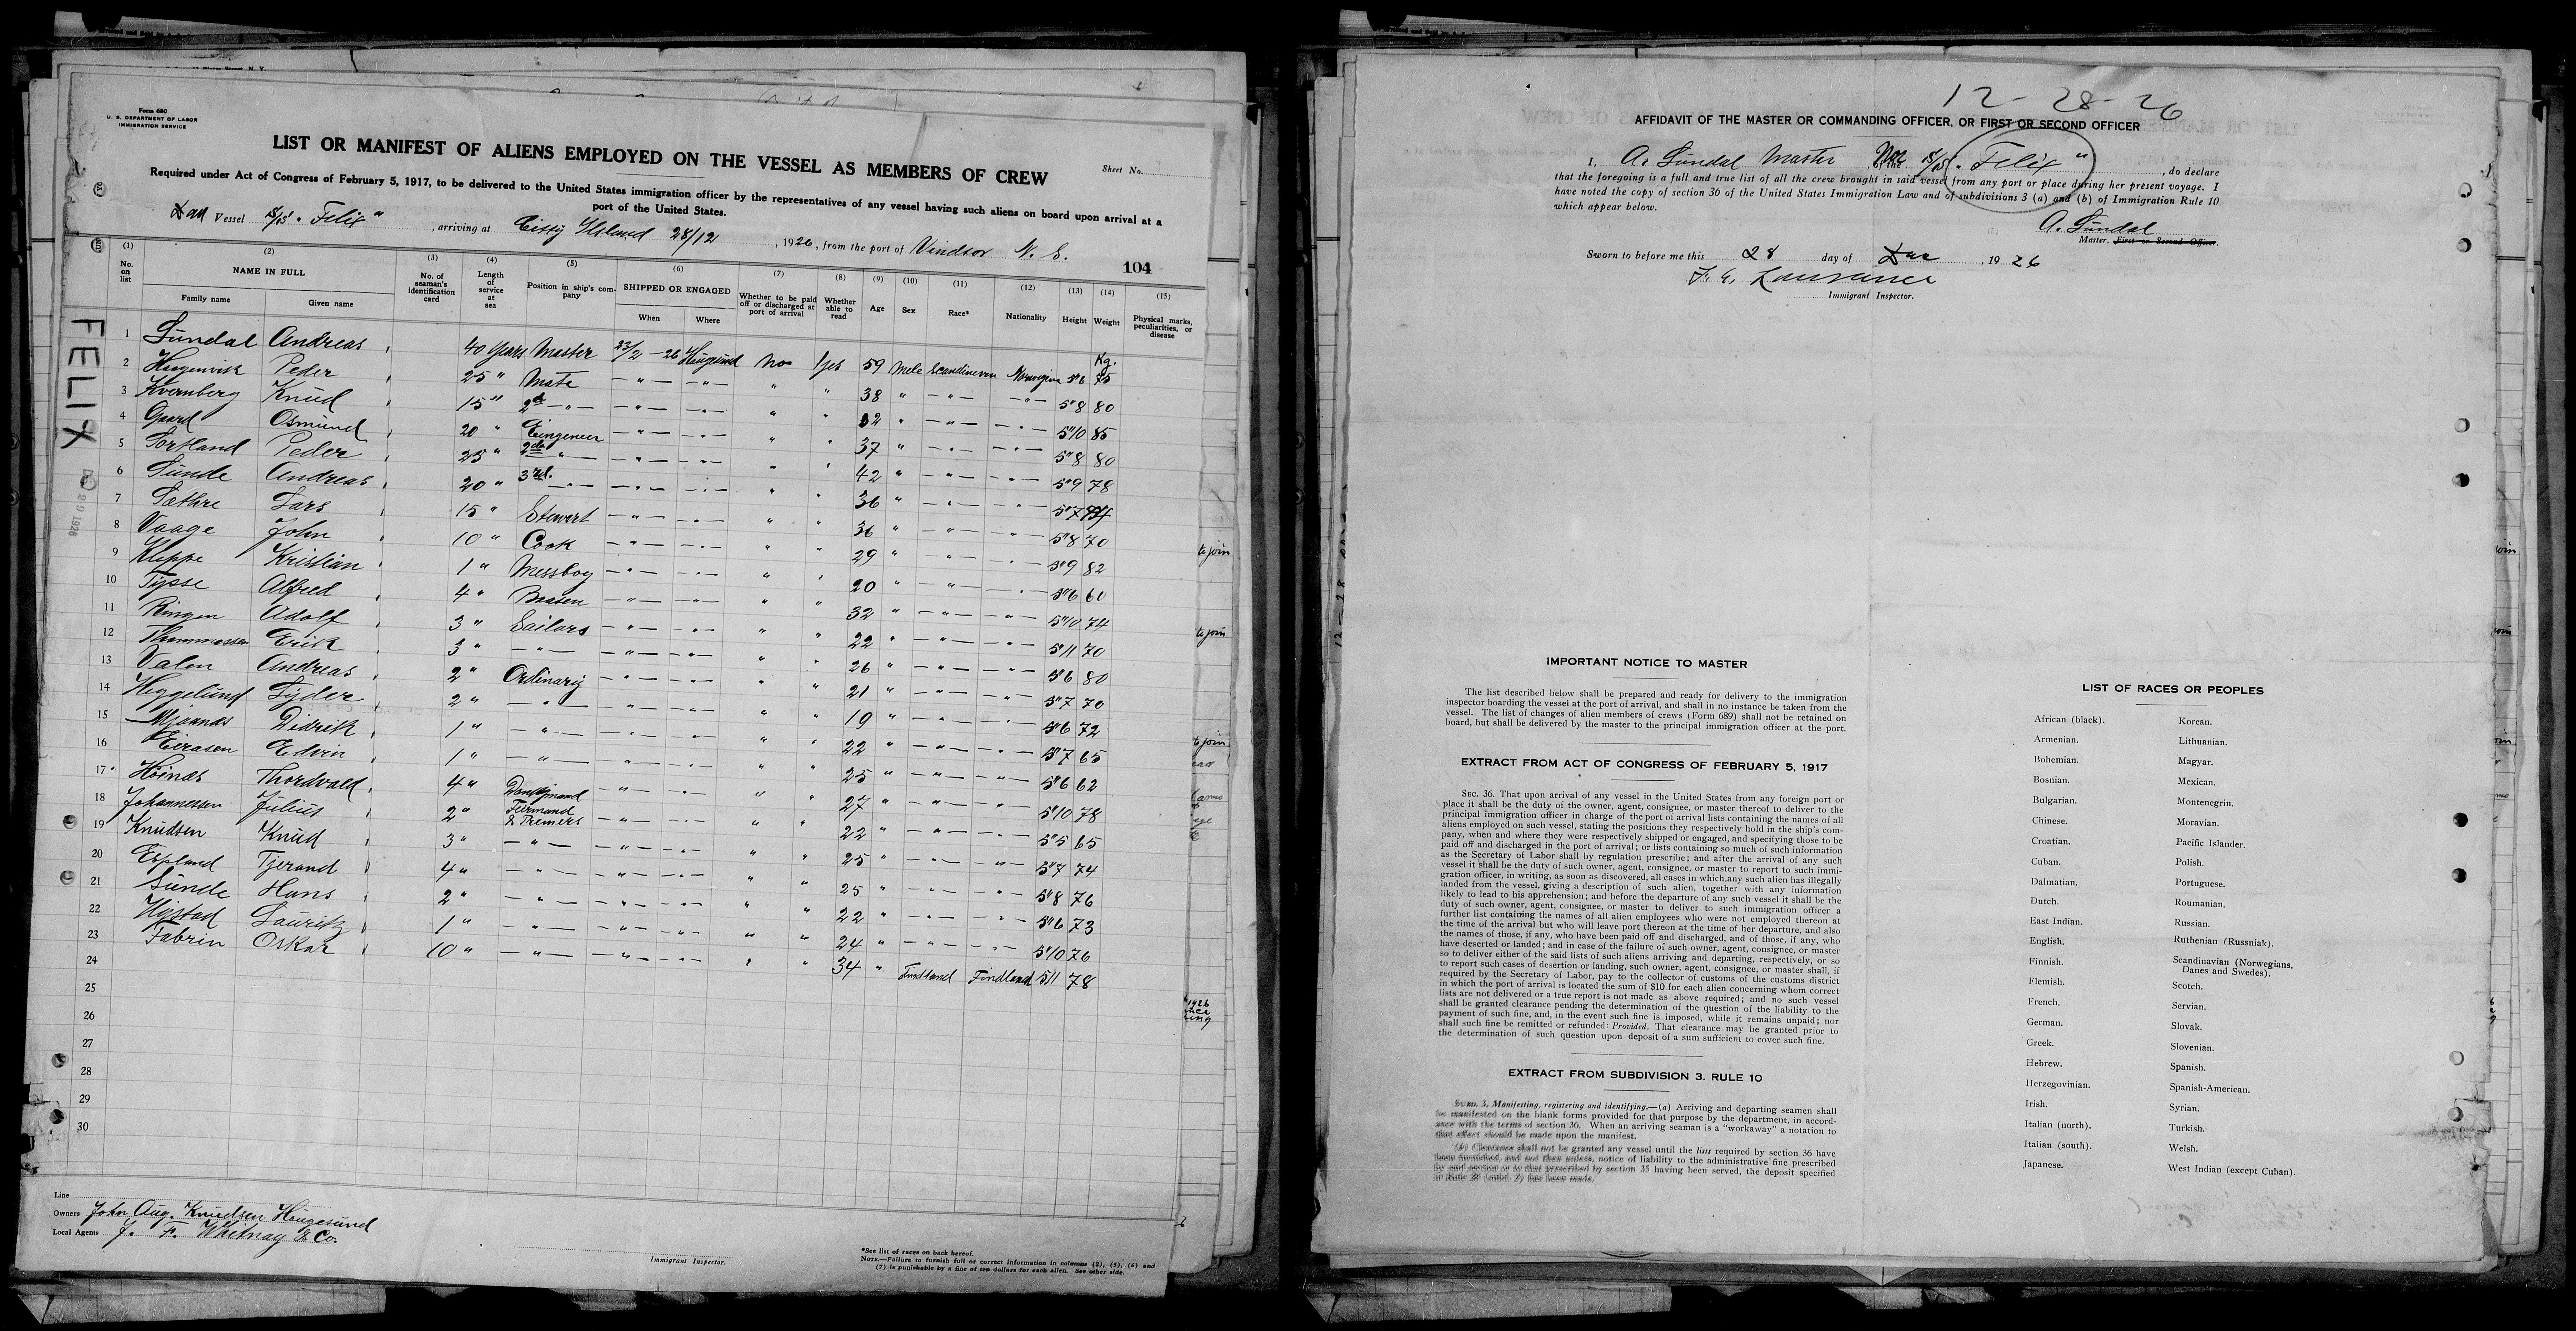 Form 680
U. S. DEPARTMENT OF LABOR
IMMIGRATION SERVICE
LIST OR MANIFEST OF ALIENS EMPLOYED ON THE VESSEL AS MEMBERS OF CREW
Sheet No.
Required under Act of Congress of February 5, 1917, to be delivered to the United States immigration officer by the representatives of any vessel having such aliens on board upon arrival at a
port of the United States.
Vessel S/S. "Felix", arriving at Citty Ilslend 28/12, 1926, from the port of Vindsor N. S.
104
(1) (2) (3) (4) (5) (6) (7) (8) (9) (10) (11) (12) (13) (14) (15)
No. on list NAME IN FULL No. of seaman's identification card Length of service at sea Position in ship's company SHIPPED OR ENGAGED Whether to be paid off or discharged at port of arrival Whether able to read Age Sex Race* Nationality Height Weight Physical marks, peculiarities, or disease
Family name Given name When Where
FELIX
1 Sundal Andreas 40 Years Master 23/2-26 Haugesund No Yes 59 Mele Scandineven Norvegian 5"6 Kg. 75
2 Haagenvik Peder 25 " Mate — " — — " — " " 38 " — " — — " — 5"8 80
3 Kvernberg Knud 15 " 2d — " — — " — — " — " " 32 " — " — — " — 5"10 85
4 Gaard Osmund 20 " Eingeneer — " — — " — " " 37 " — " — — " — 5"8 80
5 Sortland Peder 25 " 2de " — " — — " — " " 42 " — " — — " — 5"9 78
6 Sunde Andreas 20 " 3rd. — " — — " — — " — " " 36 " — " — — " — 5"7
7 Sæthre Lars 15 " Stewert — " — — " — " " 36 " — " — — " — 5"8 70
8 Vaage John 10 " Cook — " — — " — " " 29 " — " — — " — 5"9 82
9 Kleppe Kristian 1 " Messboy — " — — " — " " 20 " — " — — " — 5"6 60
10 Tysse Alfred 4 " Boasen — " — — " — " " 32 " — " — — " — 5"10 74
11 Ringen Adolf 3 " Sailors — " — — " — " " 22 " — " — — " — 5"11 70
12 Thommassen Erik 3 " — " — — " — — " — " " 26 " — " — — " — 5"6 80
13 Valen Andreas 2 " Ordinariy — " — — " — " " 21 " — " — — " — 5"7 70
14 Heggelund Syder 2 " — " — — " — — " — " " 19 " — " — — " — 5"6 72
15 Mjaanes Didrik 1 " — " — — " — — " — " " 22 " — " — — " — 5"7 65
16 Eirasen Edvin 1 " — " — — " — — " — " " 25 " — " — — " — 5"6 62
17 Høines Thordvald 4 " Donkymand — " — — " — " " 27 " — " — — " — 5"10 78
18 Johannessen Julius 2 " Fiirmand & Tremers — " — — " — " " 22 " — " — — " — 5"5 65
19 Knudsen Knud 3 " — " — — " — — " — " " 25 " — " — — " — 5"7 74
20 Espland Tjerand 4 " — " — — " — — " — " " 25 " — " — — " — 5"8 76
21 Sunde Hans 2 " — " — — " — — " — " " 22 " — " — — " — 5"6 73
22 Hystad Lauritz 1 " — " — — " — — " — " " 24 " — " — — " — 5"10 76
23 Fabrin Oskar 10 " — " — — " — — " — " " 34 " Findland Findland 5"11 78
24
25
26
27
28
29
30
to join
to join
to join
Line
Owners John Aug. Knudsen Haugesund
Local Agents J. F. Whitnay & Co.
Immigrant Inspector.
*See list of races on back hereof.
NOTE.—Failure to furnish full or correct information in columns (2), (5), (6) and
(7) is punishable by a fine of ten dollars for each alien. See other side.
12-28-26
AFFIDAVIT OF THE MASTER OR COMMANDING OFFICER, OR FIRST OR SECOND OFFICER
I, A. Sundal Master of the S/S. "Felix", do declare
that the foregoing is a full and true list of all the crew brought in said vessel from any port or place during her present voyage. I
have noted the copy of section 36 of the United States Immigration Law and of subdivisions 3 (a) and (b) of Immigration Rule 10
which appear below.
A. Sundal
Master, First or Second Officer.
Sworn to before me this 28 day of Dec, 19 26
Immigrant Inspector.
IMPORTANT NOTICE TO MASTER
The list described below shall be prepared and ready for delivery to the immigration
inspector boarding the vessel at the port of arrival, and shall in no instance be taken from the
vessel. The list of changes of alien members of crews (Form 689) shall not be retained on
board, but shall be delivered by the master to the principal immigration officer at the port.
EXTRACT FROM ACT OF CONGRESS OF FEBRUARY 5, 1917
SEC. 36. That upon arrival of any vessel in the United States from any foreign port or
place it shall be the duty of the owner, agent, consignee, or master thereof to deliver to the
principal immigration officer in charge of the port of arrival lists containing the names of all
aliens employed on such vessel, stating the positions they respectively hold in the ship's com-
pany, when and where they were respectively shipped or engaged, and specifying those to be
paid off and discharged in the port of arrival; or lists containing so much of such information
as the Secretary of Labor shall by regulation prescribe; and after the arrival of any such
vessel it shall be the duty of such owner, agent, consignee, or master to report to such immi-
gration officer, in writing, as soon as discovered, all cases in which any such alien has illegally
landed from the vessel, giving a description of such alien, together with any information
likely to lead to his apprehension; and before the departure of any such vessel it shall be the
duty of such owner, agent, consignee, or master to deliver to such immigration officer a
further list containing the names of all alien employees who were not employed thereon at
the time of the arrival but who will leave port thereon at the time of her departure, and also
the names of those, if any, who have been paid off and discharged, and of those, if any, who
have deserted or landed; and in case of the failure of such owner, agent, consignee, or master
so to deliver either of the said lists of such aliens arriving and departing, respectively, or so
to report such cases of desertion or landing, such owner, agent, consignee, or master shall, if
required by the Secretary of Labor, pay to the collector of customs of the customs district
in which the port of arrival is located the sum of $10 for each alien concerning whom correct
lists are not delivered or a true report is not made as above required; and no such vessel
shall be granted clearance pending the determination of the question of the liability to the
payment of such fine, and, in the event such fine is imposed, while it remains unpaid; nor
shall such fine be remitted or refunded: Provided, That clearance may be granted prior to
the determination of such question upon deposit of a sum sufficient to cover such fine.
EXTRACT FROM SUBDIVISION 3, RULE 10
SUBD. 3. Manifesting, registering and identifying.—(a) Arriving and departing seamen shall
be manifested on the blank forms provided for that purpose by the department, in accord-
ance with the terms of section 36. When an arriving seaman is a "workaway" a notation to
that effect should be made upon the manifest.
(b) Clearance shall not be granted any vessel until the lists required by section 36 have
been furnished, and not then unless, notice of liability to the administrative fine prescribed
by said section or to that prescribed by section 35 having been served, the deposit specified
in Rule 28 (subd. 2) has been made.
LIST OF RACES OR PEOPLES
African (black). Korean.
Armenian. Lithuanian.
Bohemian. Magyar.
Bosnian. Mexican.
Bulgarian. Montenegrin.
Chinese. Moravian.
Croatian. Pacific Islander.
Cuban. Polish.
Dalmatian. Portuguese.
Dutch. Roumanian.
East Indian. Russian.
English. Ruthenian (Russniak).
Finnish. Scandinavian (Norwegians,
Danes and Swedes).
Flemish. Scotch.
French. Servian.
German. Slovak.
Greek. Slovenian.
Hebrew. Spanish.
Herzegovinian. Spanish-American.
Irish. Syrian.
Italian (north). Turkish.
Italian (south). Welsh.
Japanese. West Indian (except Cuban).